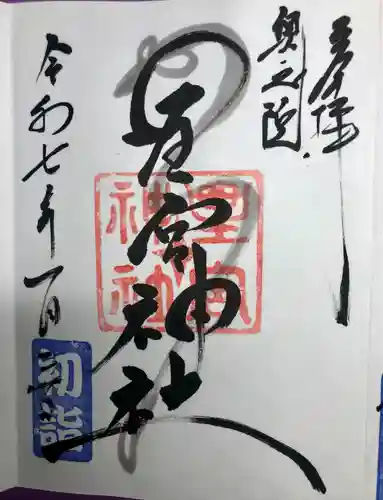 奉拝
奥之院
星宮神社
星宮
神社
令和七年一月
初詣